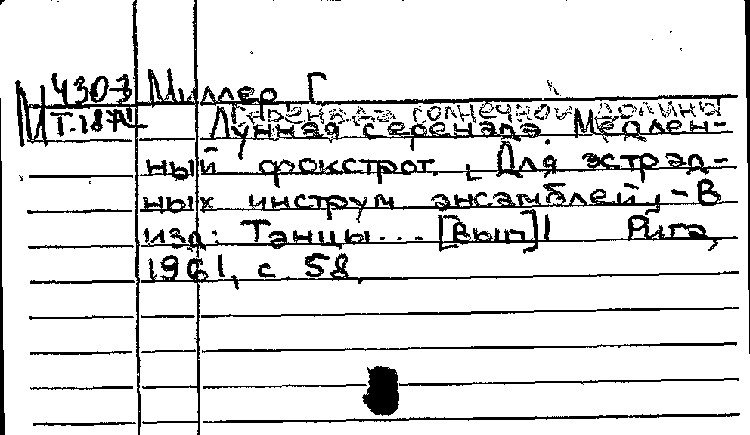 М 430-3 Миллер Г
Т.1874 [Серенада солнечной долины]
Лунная серенада. Медлен-
ный фокстрот. [Для эстрад-
ных инструм ансамблей] - В
изд: Танцы... [Вып] 1 Рига,
1961, с 58.